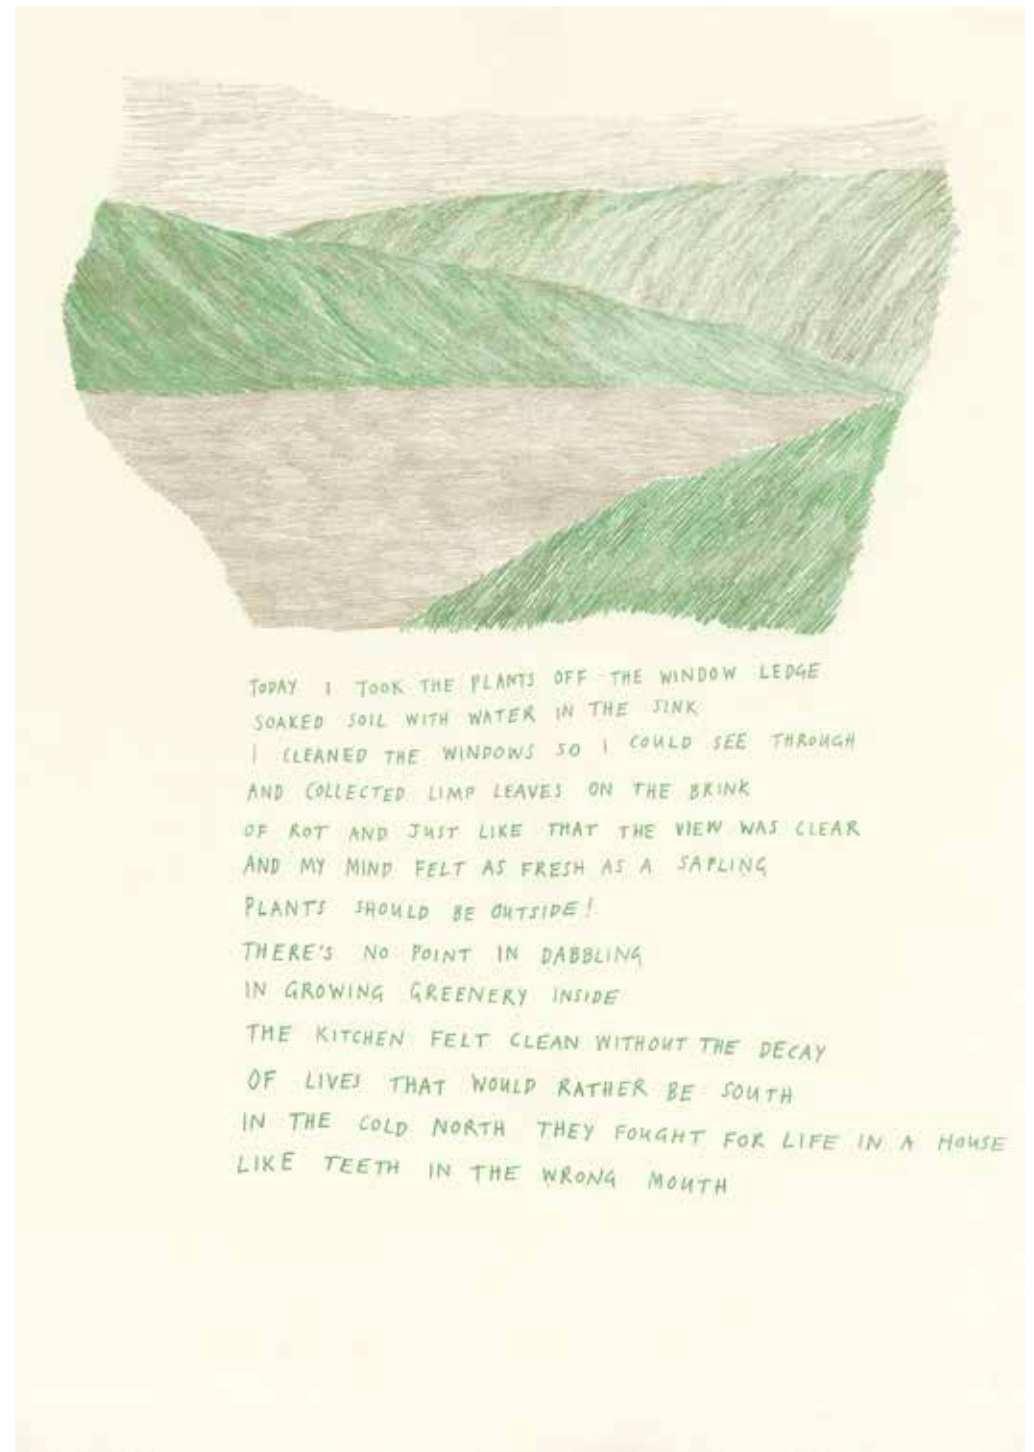 TODAY I TOOK THE PLANTS OFF THE WINDOW LEDGE
SOAKED SOIL WITH WATER IN THE SINK
I CLEANED THE WINDOWS SO I COULD SEE THROUGH
AND COLLECTED LIMP LEAVES ON THE BRINK
OF ROT AND JUST LIKE THAT THE VIEW WAS CLEAR
AND MY MIND FELT AS FRESH AS A SAPLING
PLANTS SHOULD BE OUTSIDE!
THERE'S NO POINT IN DABBLING
IN GROWING GREENERY INSIDE
THE KITCHEN FELT CLEAN WITHOUT THE DECAY
OF LIVES THAT WOULD RATHER BE SOUTH
IN THE COLD NORTH THEY FOUGHT FOR LIFE IN A HOUSE
LIKE TEETH IN THE WRONG MOUTH